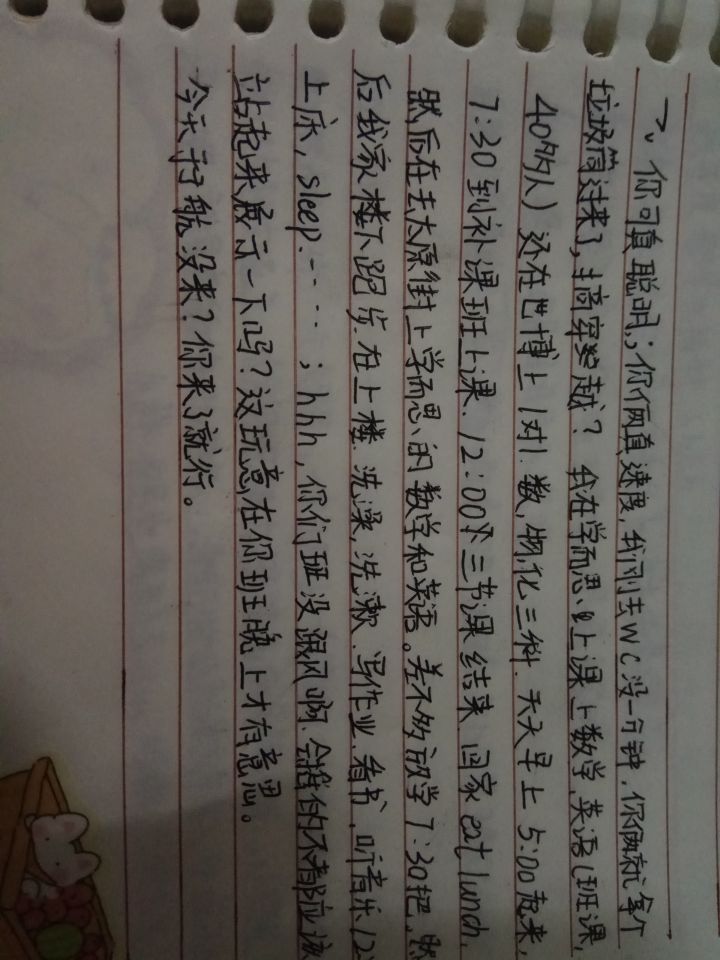 一、你可真聪明；你俩真速度，我刚去WC没一分钟，你俩就拿个
垃圾筒过来了，搞穿越？我在学而思上课上数学，英语（班课，
40多人）还在世博上1对1.数，物，化三科.天天早上5:00起来，
7:30到补课班上课.12:00三节课结束回家eat lunch.
然后在去太原街上学而思、的数学和英语。差不多放学7:30把，然
后我家楼下跑步.在上楼.洗澡，洗漱.写作业.看书，听音乐12
上床，sleep……；hhh，你们班没跟风啊.会的不都应该
站起来展示一下吗？这玩意在你班晚上才有意思。
今天于航没来？你来了就行。